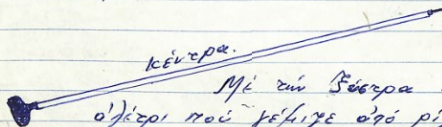 κέντρα.
Μέ τήν ξύστρα
ἀλέτρι πού γέμιζε ἀπό ρίζ